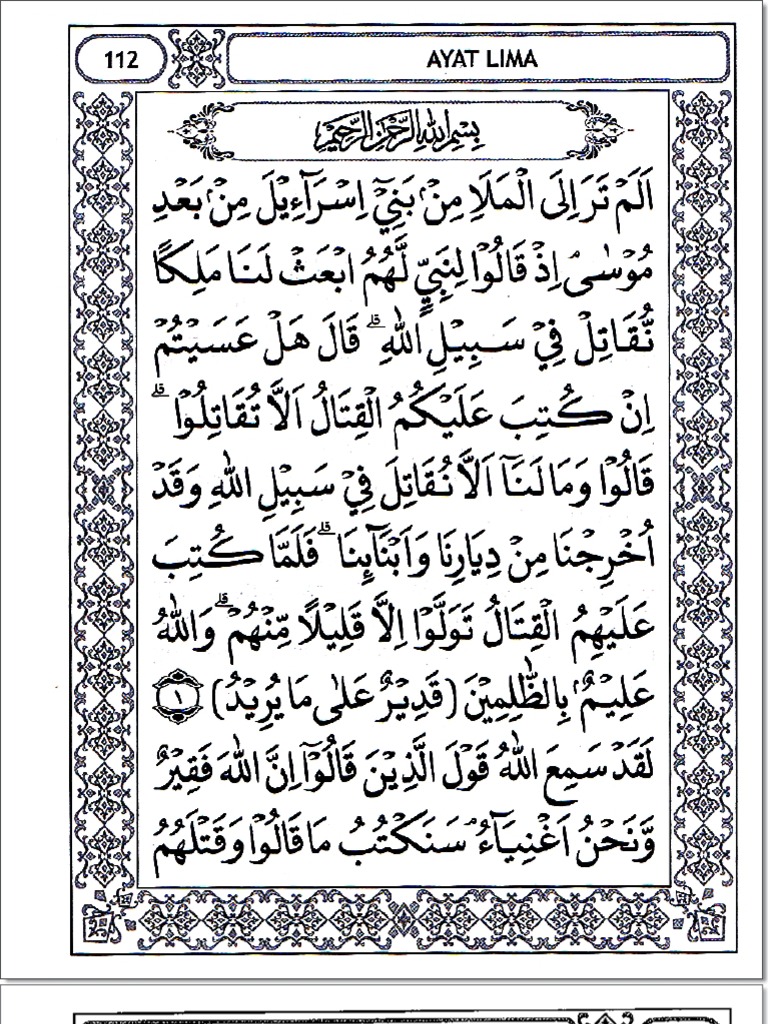 112
AYAT LIMA
بِسْمِ اللهِ الرَّحْمٰنِ الرَّحِيْمِ
اَلَمْ تَرَ اِلَى الْمَلَاِ مِنْۢ بَنِيْٓ اِسْرَآءِيْلَ مِنْۢ بَعْدِ
مُوْسٰىۘ اِذْ قَالُوْا لِنَبِيٍّ لَّهُمُ ابْعَثْ لَنَا مَلِكًا
نُّقَاتِلْ فِيْ سَبِيْلِ اللهِ ۗ قَالَ هَلْ عَسَيْتُمْ
اِنْ كُتِبَ عَلَيْكُمُ الْقِتَالُ اَلَّا تُقَاتِلُوْا ۗ
قَالُوْا وَمَا لَنَآ اَلَّا نُقَاتِلَ فِيْ سَبِيْلِ اللهِ وَقَدْ
اُخْرِجْنَا مِنْ دِيَارِنَا وَاَبْنَآئِنَا ۗ فَلَمَّا كُتِبَ
عَلَيْهِمُ الْقِتَالُ تَوَلَّوْا اِلَّا قَلِيْلًا مِّنْهُمْ ۗ وَاللهُ
عَلِيْمٌۢ بِالظّٰلِمِيْنَ (قَدِيْرٌ عَلٰى مَا يُرِيْدُ) ١
لَقَدْ سَمِعَ اللهُ قَوْلَ الَّذِيْنَ قَالُوْٓا اِنَّ اللهَ فَقِيْرٌ
وَّنَحْنُ اَغْنِيَآءُۘ سَنَكْتُبُ مَا قَالُوْا وَقَتْلَهُمُ